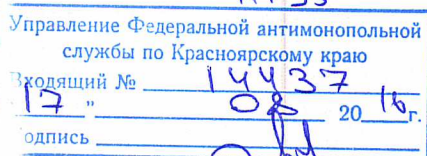 Управление Федеральной антимонопольной
службы по Красноярскому краю
Входящий № 14437
17 " 08 2016г.
одпись